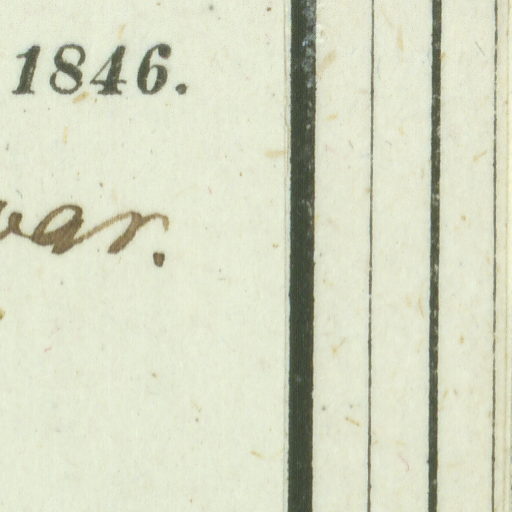 1846.
var.